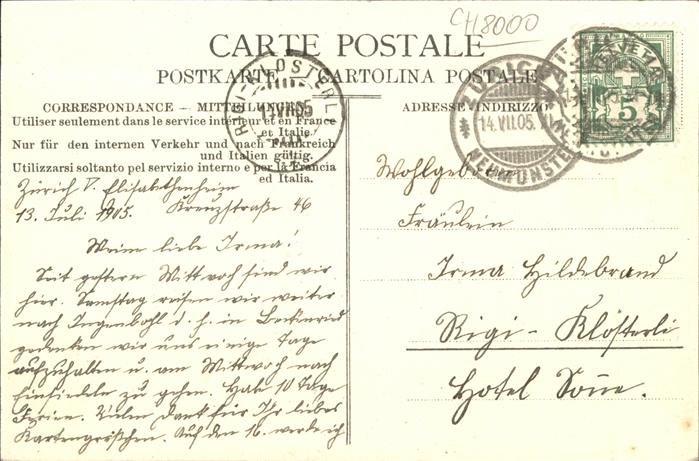 CH8000
CARTE POSTALE
POSTKARTE CARTOLINA POSTALE
CORRESPONDANCE — MITTEILUNGEN
Utiliser seulement dans le service intérieur et en France
et Italie.
Nur für den internen Verkehr und nach Frankreich
und Italien gültig.
Utilizzarsi soltanto pel servizio interno e per la Francia
ed Italia.
ADRESSE-INDIRIZZO
RIGI-KLÖSTERLI
14.VII.05
ZÜRICH
14.VII.05.XI
NEUMÜNSTER
HELVETIA
5
Zürich V. Elisabethenheim
13. Juli 1905. Kreuzstraße 46
Meine liebe Irma!
Seit gestern Mittwoch sind wir
hier. Samstag reisen wir weiter
nach Ingenbohl d. h. in Beckenried
gedenken wir uns einige Tage
aufzuhalten u. am Mittwoch nach
Einsiedeln zu gehen. Hab 10 Tage
Ferien. Vielen Dank für Ihr liebes
Kartengrüßchen. Auf den 16. werde ich
Wohlgeboren
Fräulein
Irma Hildebrand
Rigi-Klösterli
Hotel Sonne.